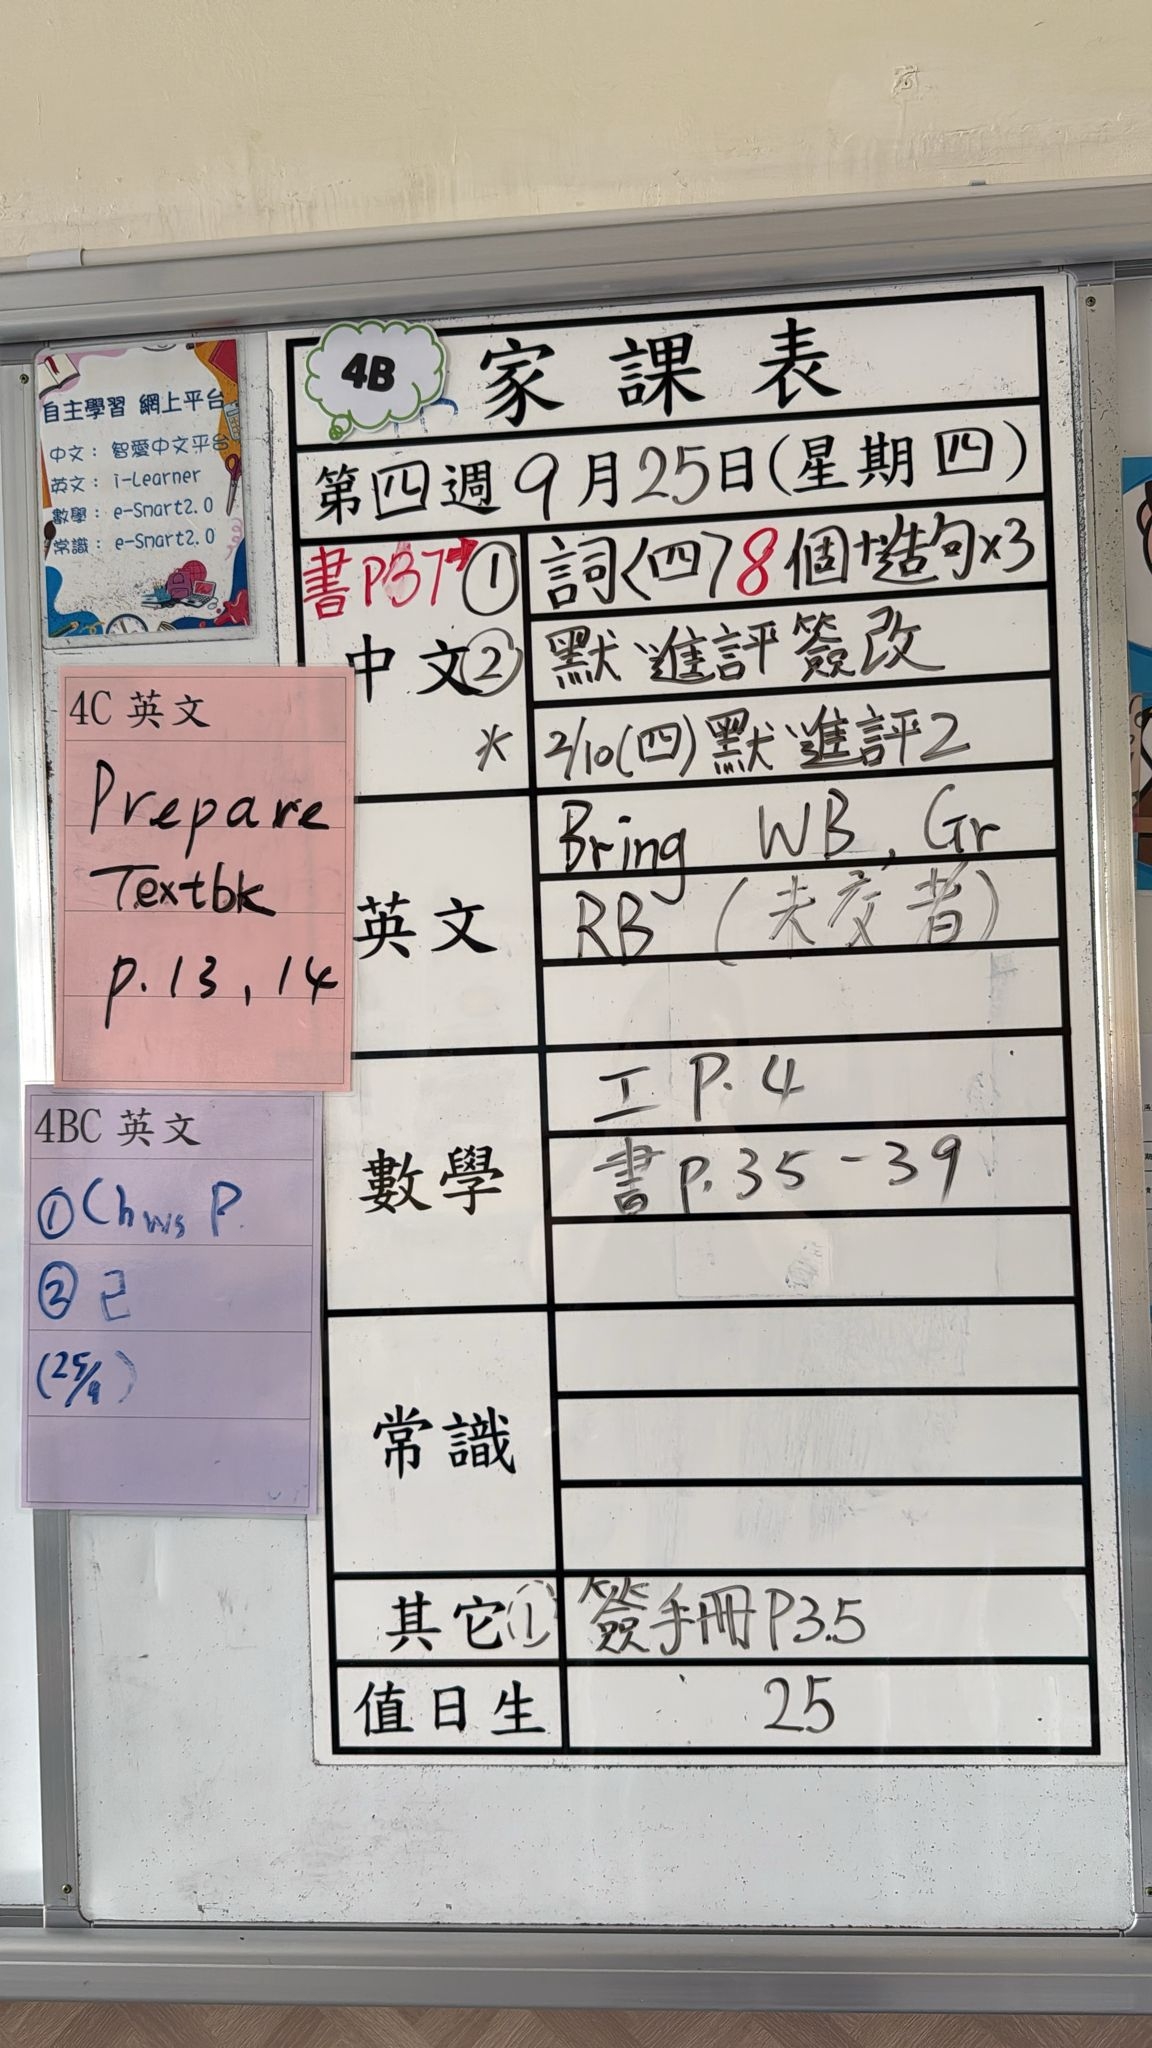 4B
家課表
第四週9月25日(星期四)
書P37→① 詞<四>8個+造句x3
中文② 默進評簽改
* 2/10(四)默進評2
英文
Bring WB, Gr
RB (未交者)
數學
工 P.4
書 p.35-39
常識
其它① 簽手冊P35
值日生 25
自主學習 網上平台
中文: 智愛中文平台
英文: i-Learner
數學: e-Smart2.0
常識: e-Smart2.0
4C 英文
Prepare
Textbk
p.13, 14
4BC 英文
①Ch ws P.
②
(25/9)